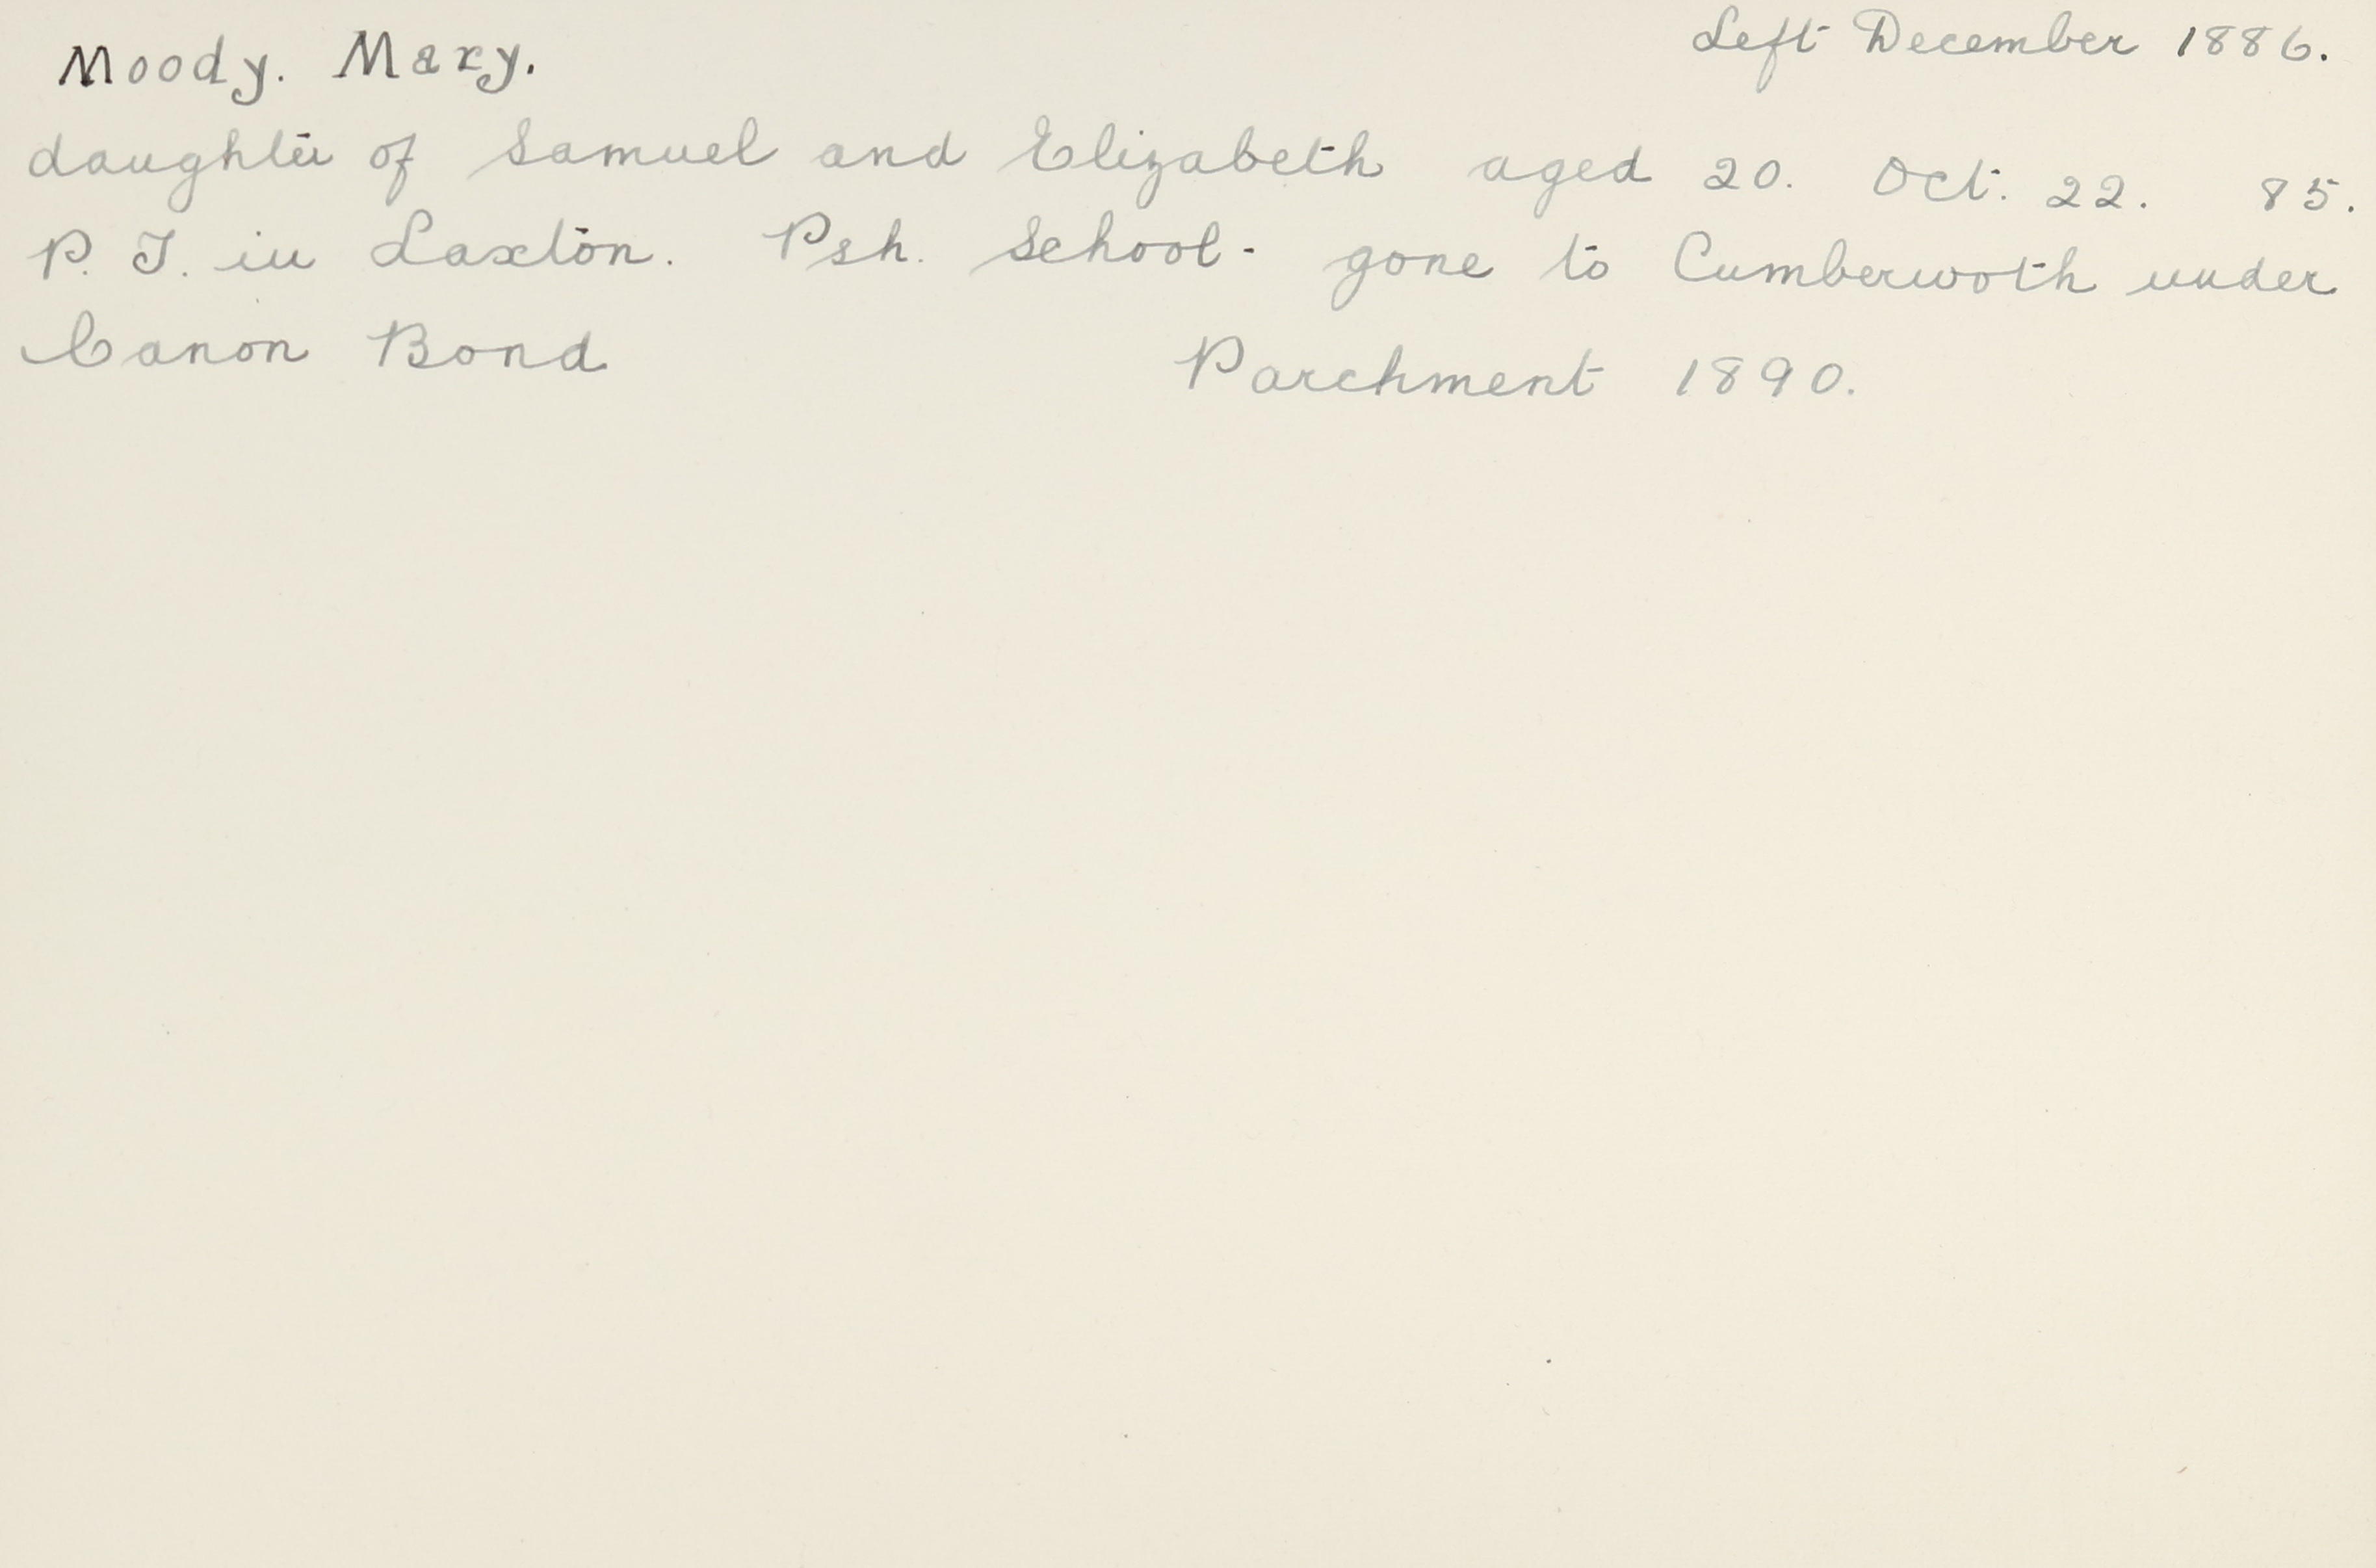 Moody. Mary. Left December 1886.
daughter of Samuel and Elizabeth aged 20. Oct. 22. 85.
P. T. in Laxton. Psh. School - gone to Cumberwoth under
Canon Bond Parchment 1890.